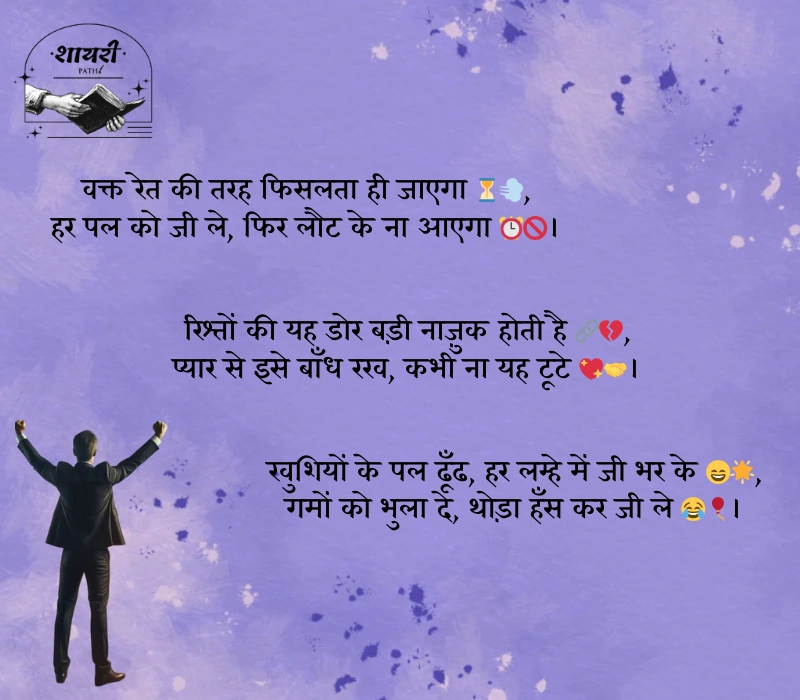 शायरी
PATH
वक्त रेत की तरह फिसलता ही जाएगा ⏳💨,
हर पल को जी ले, फिर लौट के ना आएगा ⏰🚫।
रिश्तों की यह डोर बड़ी नाज़ुक होती है 🔗💔,
प्यार से इसे बाँध रख, कभी ना यह टूटे 💖🤝।
खुशियों के पल ढूँढ, हर लम्हे में जी भर के 😄🌟,
गमों को भुला दे, थोड़ा हँस कर जी ले 😂🎈।